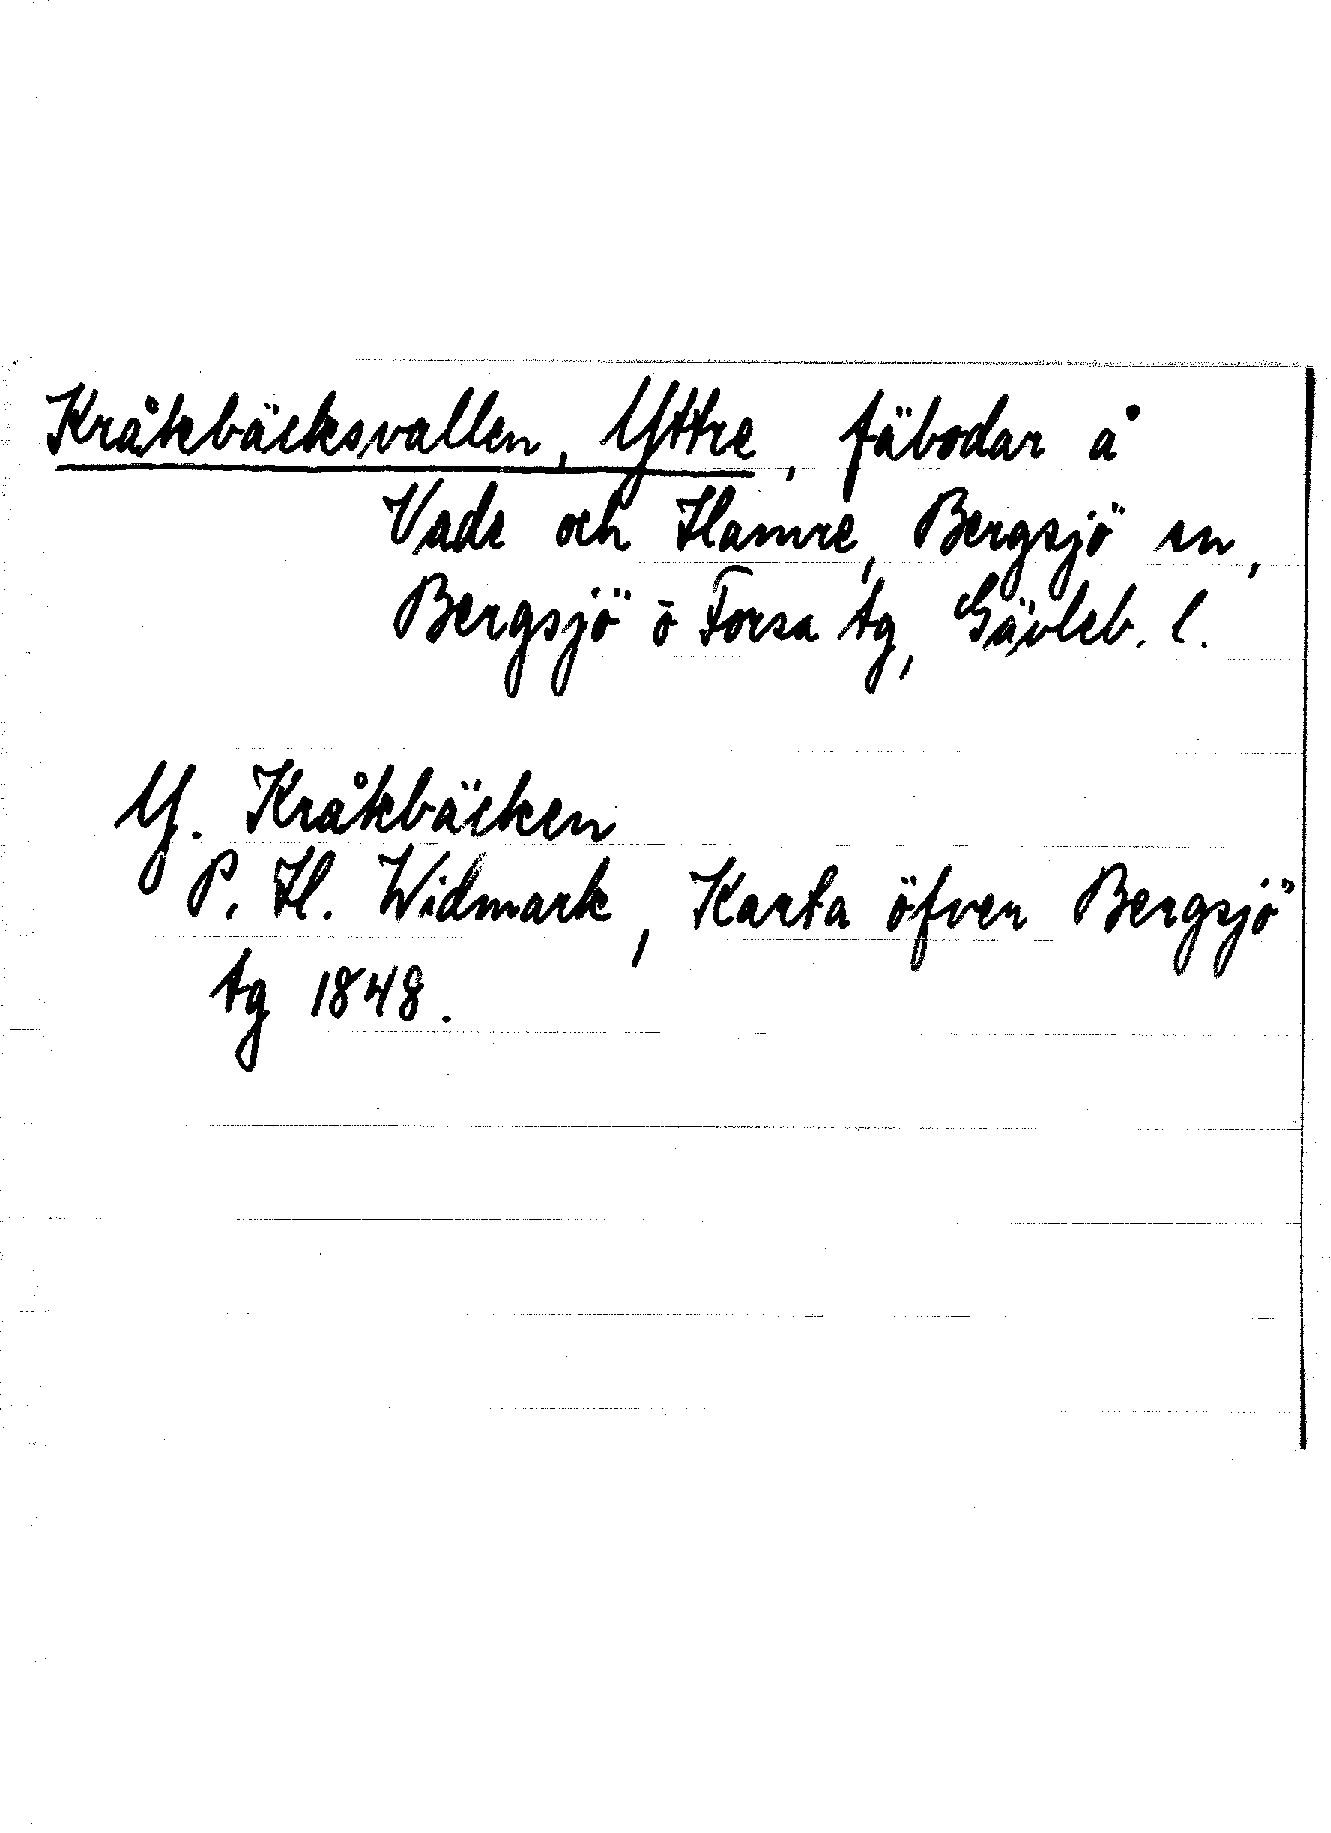 Kråkbäcksvallen, Yttre, fäbodar å
Vade och Hamre, Bergsjö sn,
Bergsjö o Forsa tg, Gävleb. l.
Y. Kråkbäcken
P. H. Widmark, Karta öfver Bergsjö
tg 1848.